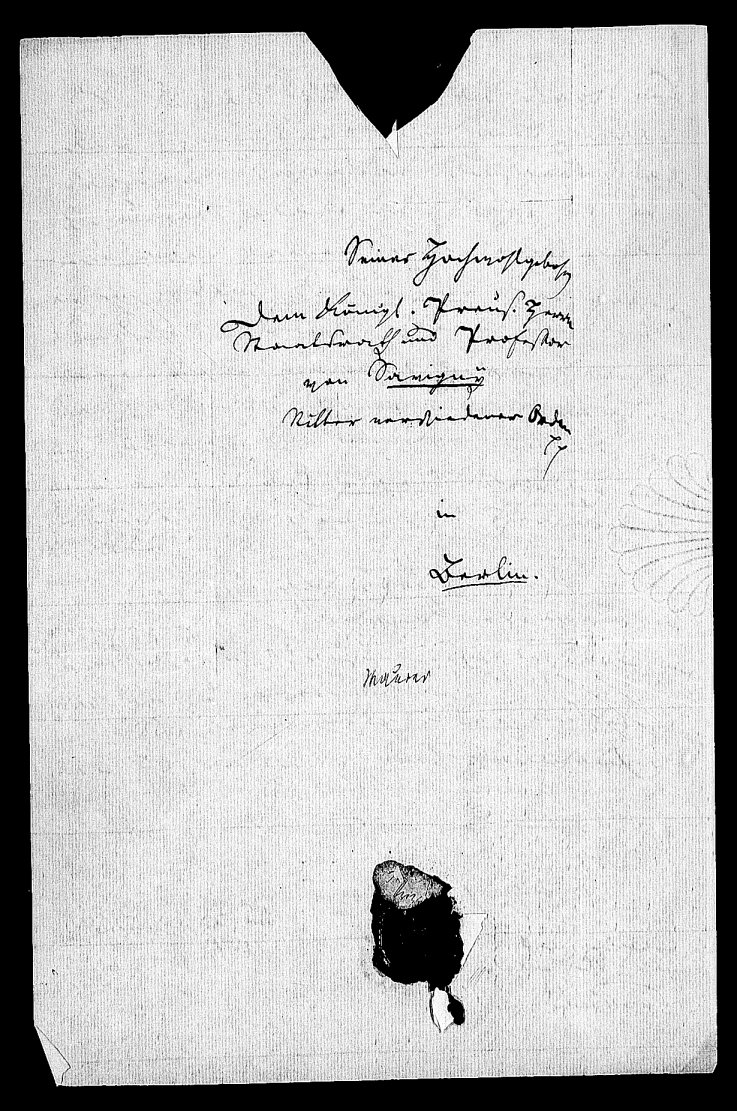 Seiner Hochwohlgeborn
Dem Königl. Preuß. Herrn
Staatsrath und Professor
von Savigny
Ritter verschiedener Orden
in
Berlin.
Maurer